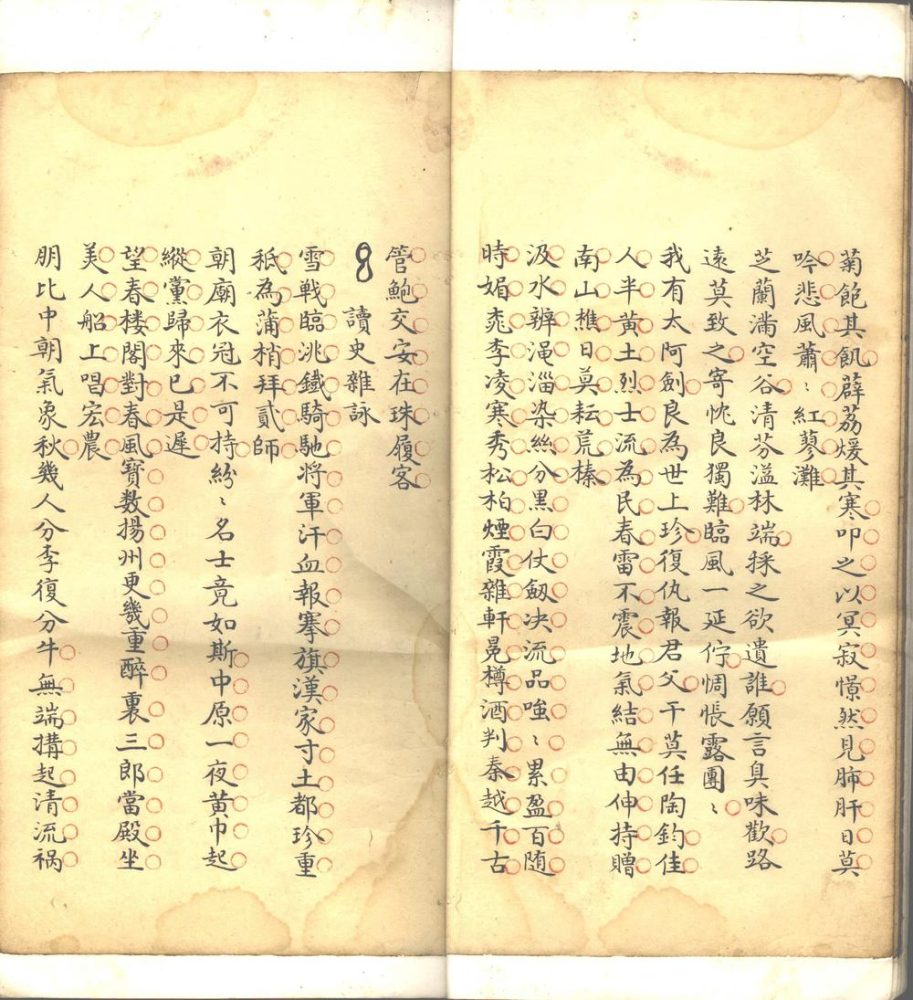 菊飽其飢薜荔煖其寒叩之以冥寂憬然見肺肝日莫
吟悲風蕭〻紅蓼灘
芝蘭滿空谷清芬溢林端採之欲遺誰願言臭味歡路
遠莫致之寄忱良獨難臨風一延佇惆悵露團〻
我有太阿劍良為世上珍復仇報君父干莫任陶鈞佳
人半黃土烈士流為民春雷不震地氣結無由伸持贈
南山樵日莫耘荒榛
汲水辨渑淄染絲分黑白仗劔决流品嗤〻累盈百随
時媚桃李凌寒秀松柏煙霞雜軒冕樽酒判秦越千古
管鮑交安在珠履客
讀史雜詠
雪戰臨洮鐵騎馳將軍汗血報搴旗漢家寸土都珍重
秪為蒲梢拜貳師
朝廟衣冠不可持紛〻名士竟如斯中原一夜黃巾起
縱黨歸來已是遲
望春楼閣對春風寶数揚州更幾重醉裏三郎當殿坐
美人船上唱宏農
朋比中朝氣象秋幾人分李復分牛無端搆起清流祸